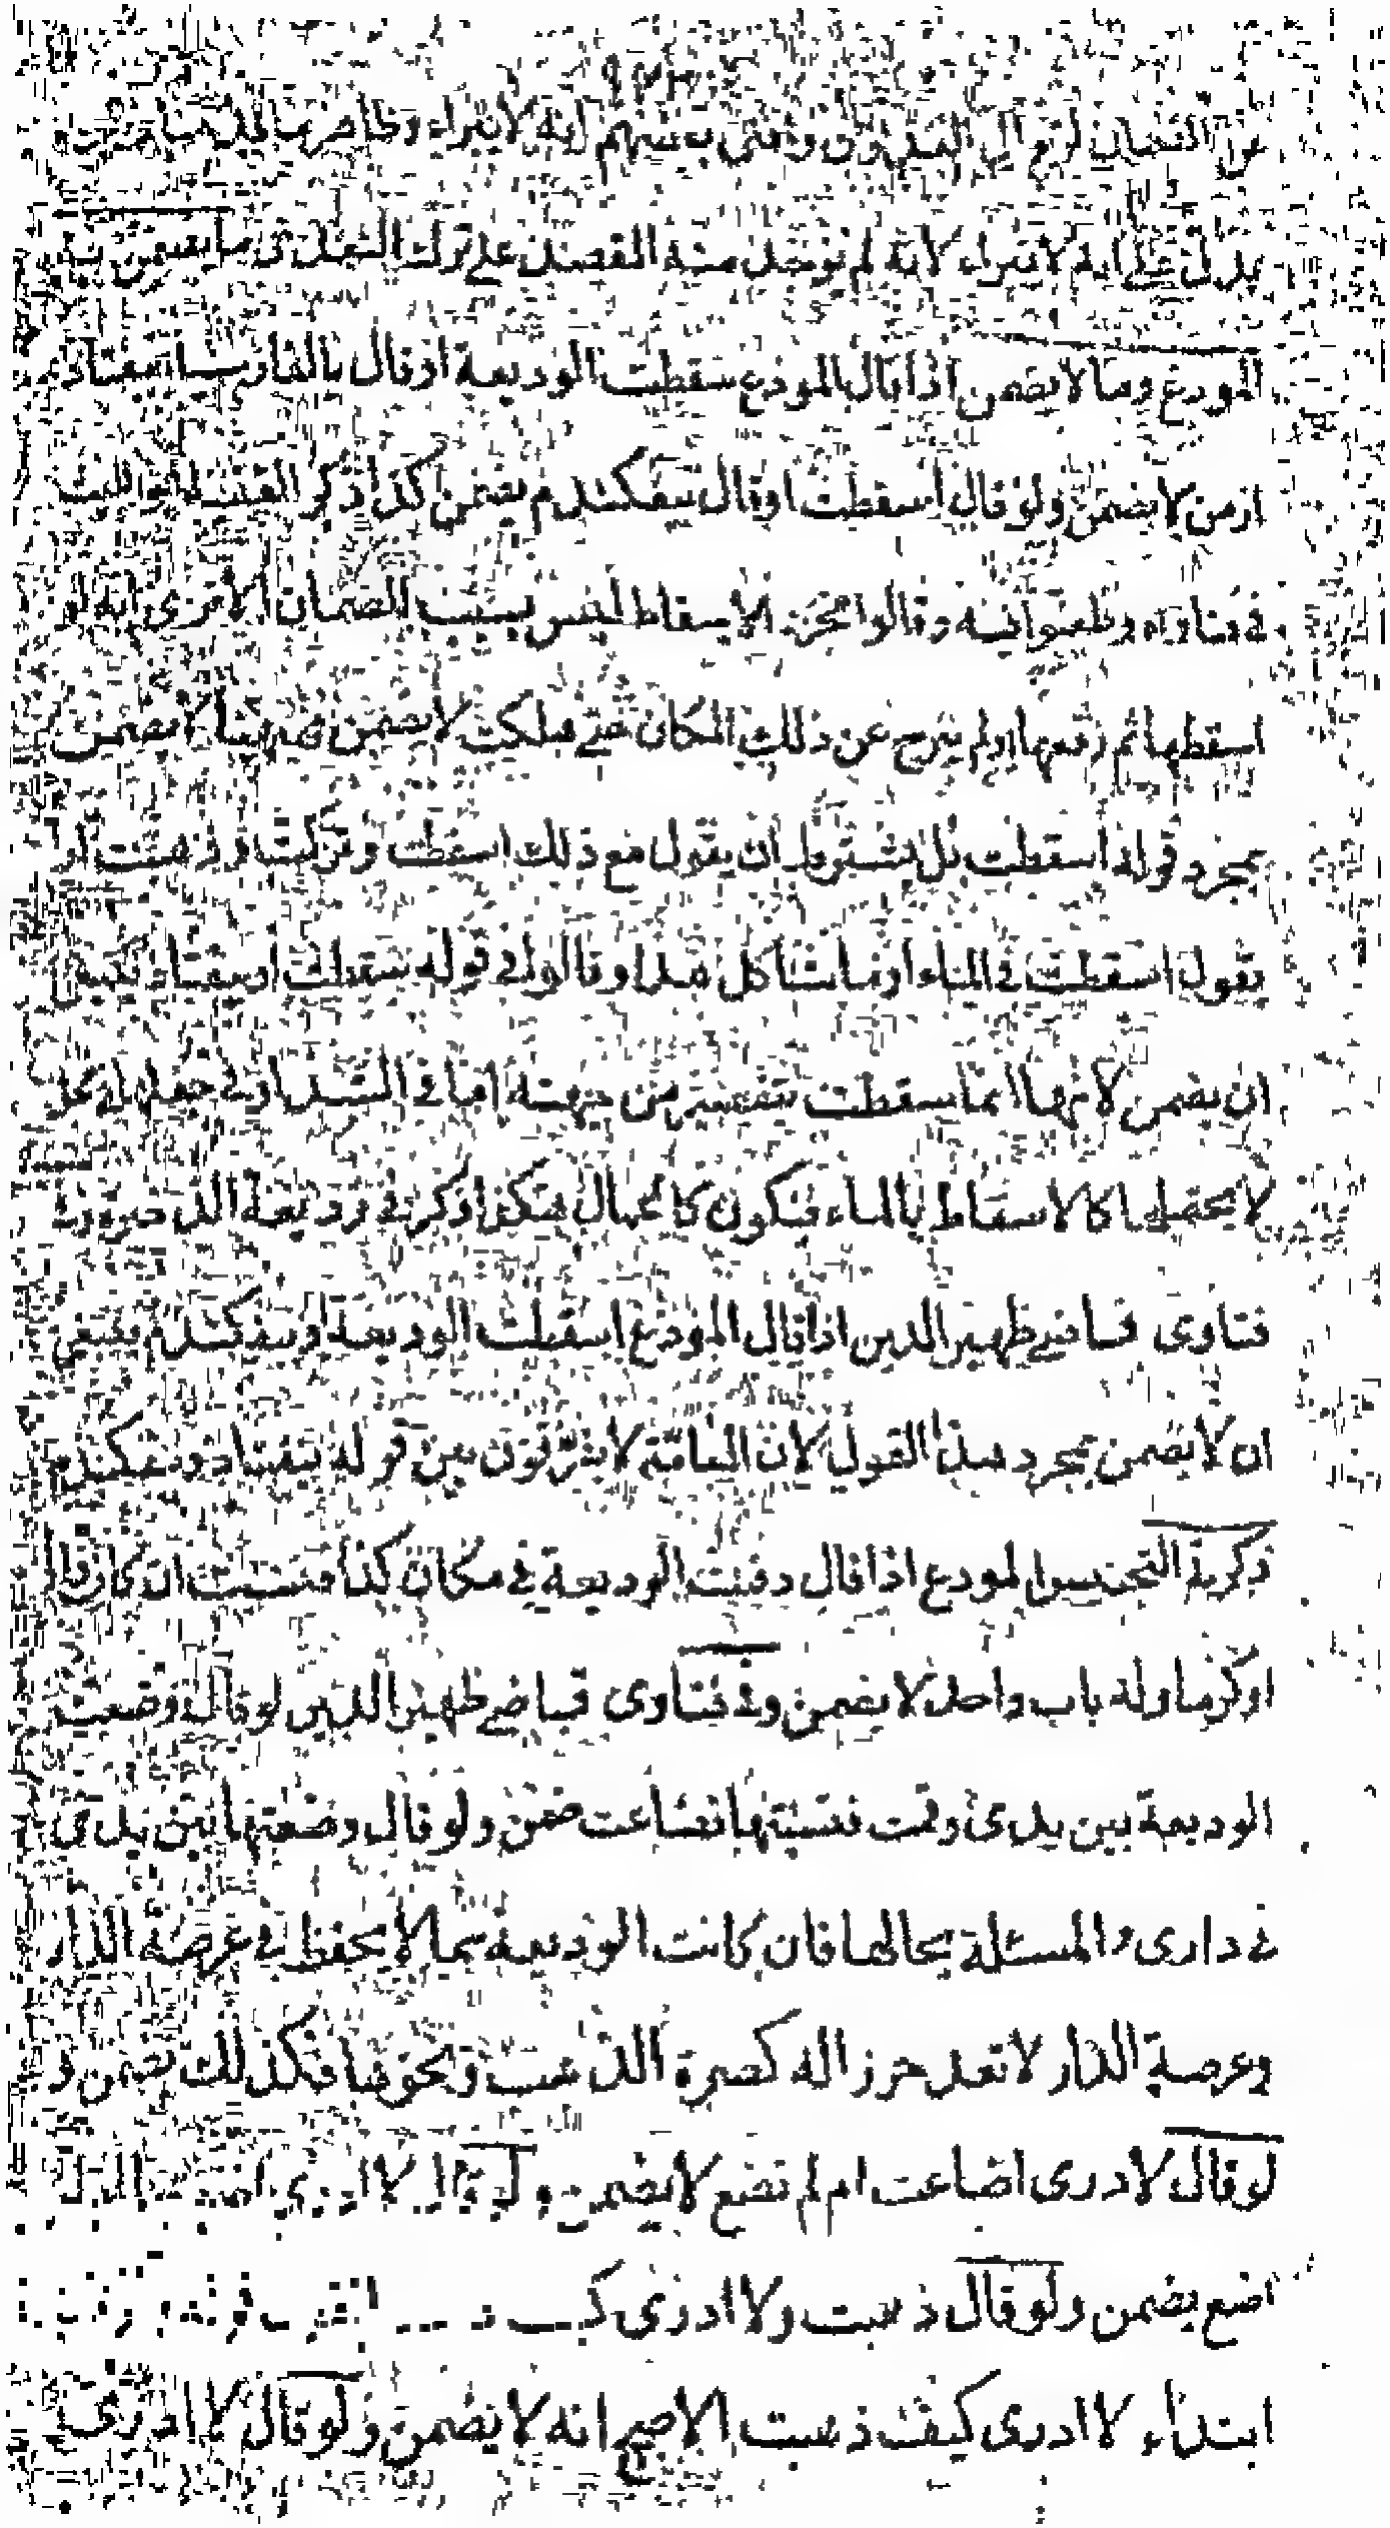 عن الضمان لزم انه لا يبراء
يدل على انه لا يبراء لانه لم يوجد منه القصد على ترك التعدى ما يضمن به
المودع وما لا يضمن اذا قال المودع سقطت الوديعة او قال بالفارسية
ازمن لا يضمن ولو قال اسقطت او قال بيفكندم يضمن كذا ذكر الفقيه ابو الليث
فى فتاواه وطعنوا فيه وقالوا مجرد الاسقاط ليس بسبب الضمان الا ترى انه لو
اسقطها ثم رفعها ولم يبرح عن ذلك المكان حتى هلكت لا يضمن فههنا لا يضمن
بمجرد قوله اسقطت بل يشترط ان يقول مع ذلك اسقطت وتركت وذهبت او
يقول اسقطت فى الماء او ما شاكل هذا وقالوا فى قوله سقطت او بيفتاد ينبغى
ان يضمن لانها انما سقطت من جهته اما فى الشد او فى جعلها فى محل
لا يحتملها كالاسقاط بالماء فيكون كالحمال هكذا ذكر فى وديعة الذخيرة
فتاوى قاضى ظهير الدين اذا قال المودع اسقطت الوديعة او بيفكندم ينبغى
ان لا يضمن بمجرد هذا القول لان العامة لا يفرقون بين قوله بيفتاد وبيفكندم
ذكر فى التجنيس المودع اذا قال دفنت الوديعة فى مكان كذا فنسيت ان كان قال
او كرما وله باب واحد لا يضمن وفى فتاوى قاضى ظهير الدين لو قال وضعت
الوديعة بين يدى وقمت فنسيتها فضاعت ضمن ولو قال وضعتها بين يدى
فى دارى والمسئلة بحالها فان كانت الوديعة مما لا يحفظ فى عرصة الدار
وعرصة الدار لا تعد حرزا له كصرة الذهب ونحوها فكذلك يضمن و
لو قال لا درى اضاعت ام لم تضع لا يضمن ولو قال لا ادرى
اضع يضمن ولو قال ذهبت ولا ادرى
ابتداء لا ادرى كيف ذهبت الاصح انه لا يضمن ولو قال لا ادرى